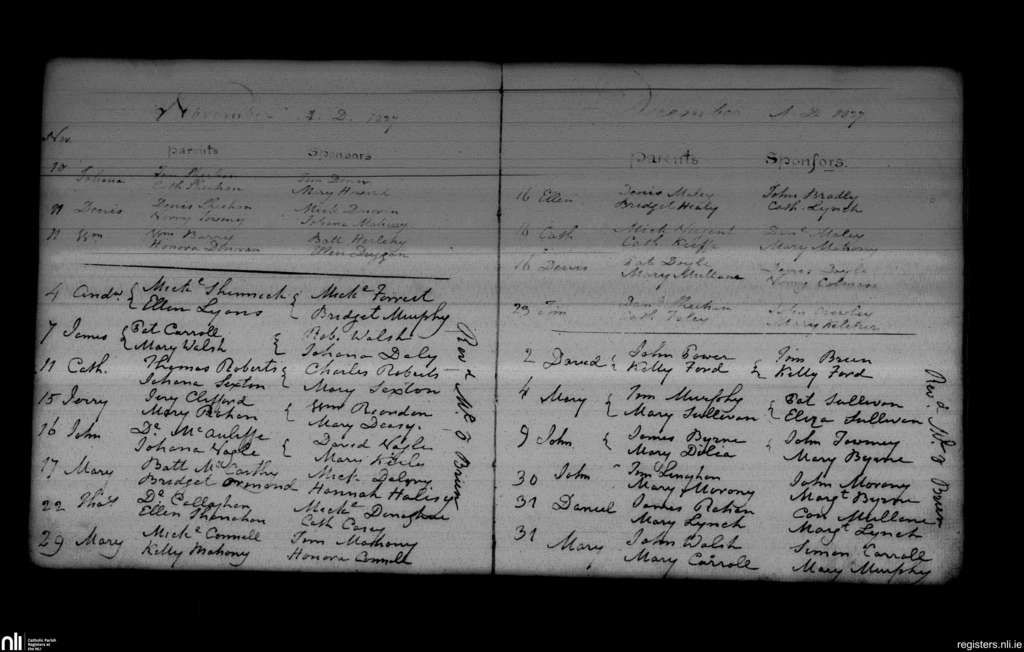 November A. D. 1827
Nov.
Parents Sponsors
Johana Tim Sheehan
Cath Sheehan Mary
11 Denis Denis Sheehan Mick Donovan
Norry Johana
11 Wm Wm Barry Batt Herlihy
Honora Donovan Ellen Duggan
4 Andw. Mick Shinnick Mick Forrest
Ellen Lyons Bridget Murphy
7 James Pat Carroll Rob. Walsh
Mary Walsh Johana Daly
11 Cath. Thomas Roberts Charles Roberts
Johana Sexton Mary Sexton
15 Jerry Jery Clifford Wm Reordon
Mary Mary Deasy.
16 John Dl. McAuliffe David Nagle
Johana Nagle Mary
17 Mary Batt McCarthy Mick
Bridget Ormond Hannah
22 Thos. Dl. Callaghan Mick Donoghue
Ellen Shanahan Cath Casey
29 Mary Mick Connell Tom Mahony
Kelly Mahony Honora Connell
Revd. Mr. O Brien
December A. D. 1827
Parents Sponsors.
16 Ellen Denis Maley John Bradly
Bridget Healy Cath. Lynch
16 Cath Mick Nugent Maley
Cath Keiffe Mary Mahony
16 Denis Pat Doyle James Doyle
Mary Mullane Norry Coleman
23 Tim Sheehan John Crowley
Cath Foley Mary Kelcher
2 David John Power Tim Brien
Kelly Ford Kelly Ford
4 Mary Tim Murphy Pat Sullivan
Mary Sullivan Eliza Sullivan
9 John James Byrne John Twomey
Mary Dilia Mary Byrne
30 John Tim Linighan John Morony
Mary Morony Margt Byrne
31 Daniel James Rahan Con Mullane
Mary Lynch Margt. Lynch
31 Mary John Walsh Simon Carroll
Mary Carroll Mary Murphy
Revd. Mr. O Brien
nli Catholic Parish
Registers at
the NLI
registers.nli.ie